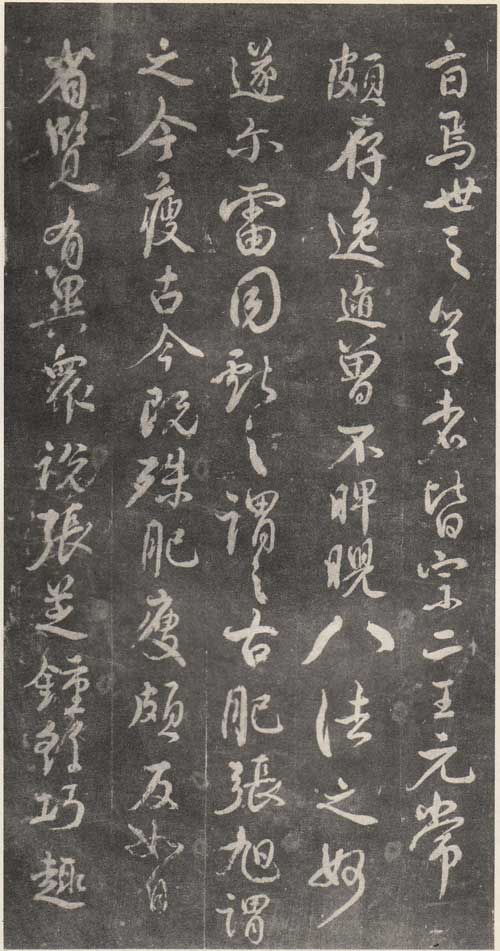 焉世之学者皆宗二王元常
頗存逸迹曾不睥睨八法之
遂尔雷同獻之謂之古肥張旭謂
之今瘦古今既殊肥瘦頗反如自
省覽有異衆說張芝鍾繇巧趣